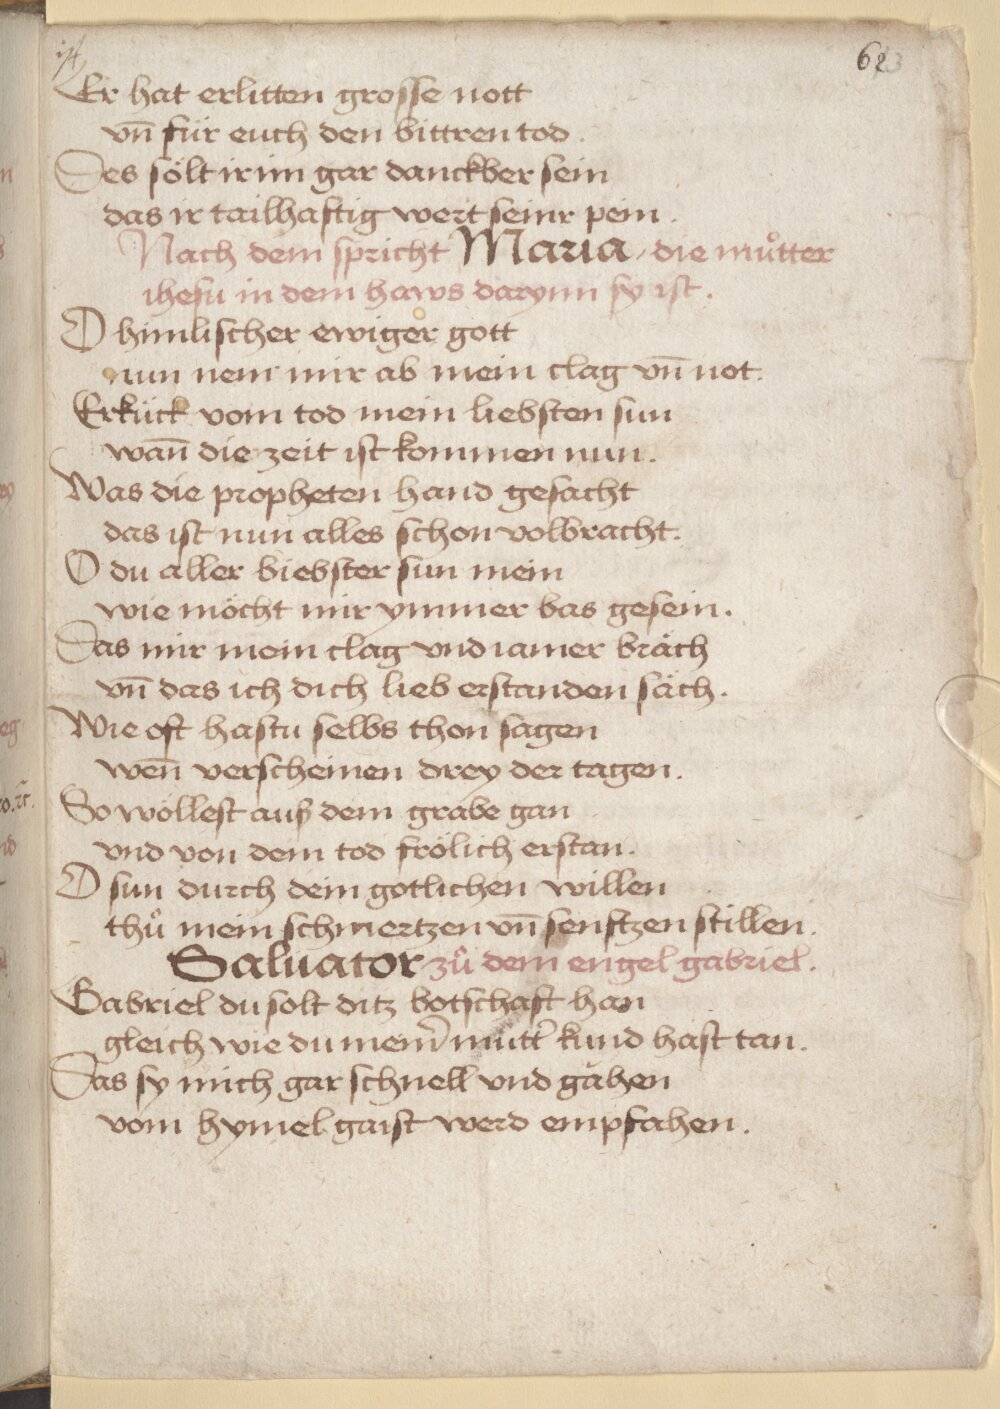 62
Er hat erlitten grosse nott
vn̄ für euch den bittren tod.
Des sölt ir im gar danckber sein
das ir tailhaftig wert seinr pein.
Nach dem spricht Maria, die můtter
ihesu in dem haws darynn sy ist.
O himlischer ewiger gott
nun nem mir ab mein clag vn̄ not.
Erkück vom tod mein liebsten sun
wan̄ die zeit ist kommen nun.
Was die propheten hand gesacht
das ist nun alles schon volbracht.
O du aller biebster sun mein
wie möcht mir ymmer bas gesein.
Das mir mein clag vnd iamer bräch
vn̄ das ich dich lieb erstanden säch.
Wie oft hastu selbs thon sagen
wen̄ verscheinen drey der tagen.
So wöllest auß dem grabe gan
vnd von dem tod frölich erstan.
O sun durch dein gotlichen willen
thů mein schmertzen vn̄ senftzen stillen.
Saluator zů dem engel gabriel.
Gabriel du solt ditz botschaft han
gleich wie du mein̄ mutt̄ kund hast tan.
Das sy mich gar schnell vnd gähen
vom hymel gaist werd empfahen.